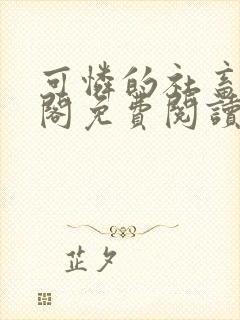 可憐的社畜
閣免費閱讀
芷夕